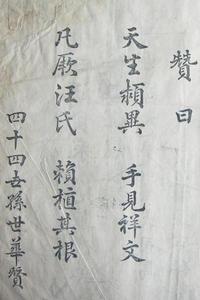 贊曰
天生穎異 手見祥文
凡厥汪氏 賴植其根
四十四世孫世華贊